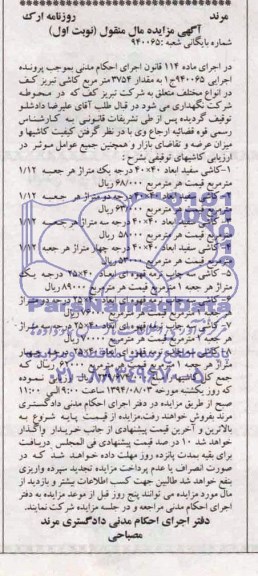 مرند روزنامه ارک
آگهی مزایده مال منقول (نوبت اول)
شماره بایگانی شعبه: ۹۴۰۰۶۵
در اجرای ماده ۱۱۴ قانون اجرای احکام مدنی بموجب پرونده
اجرایی ۹۴۰۰۶۵ج۱ به مقدار ۳۷۵۴ متر مربع کاشی تبریز کف
در انواع مختلف متعلق به شرکت تبریز کف که در محوطه
شرکت نگهداری می شود در قبال طلب آقای علیرضا دادشلو
توقیف گردیده پس از طی تشریفات قانونی به کارشناس
رسمی قوه قضائیه ارجاع وی با در نظر گرفتن کیفیت کاشیها و
میزان عرضه و تقاضای بازار و همچنین جمیع عوامل موثر در
ارزیابی کاشیهای توقیفی بشرح:
۱-کاشی سفید ابعاد ۴۰×۴۰ درجه یک متراژ هر جعبه ۱/۱۲
مترمربع قیمت هر مترمربع ۶۸/۰۰۰ ریال
کاشی سفید ابعاد ۴۰×۴۰ درجه دو متراژ هر جعبه ۱/۱۲
مترمربع قیمت هر مترمربع ریال
کاشی سفید ابعاد ۴۰×۴۰ درجه سه متراژ هر جعبه ۱/۱۲
مترمربع قیمت هر مترمربع ۵۸۰۰۰ ریال
کاشی سفید ابعاد ۴۰×۴۰ درجه چهار متراژ هر جعبه ۱/۱۲
مترمربع قیمت هر مترمربع ریال
۵- کاشی چاپ ترمه قهوه ای ابعاد ۴۰×۲۵ درجه یک
متراژ هر جعبه ۱ مترمربع قیمت هر مترمربع ۸۹۰۰۰ ریال
کاشی چاپ ترمه قهوه ای ابعاد درجه دو متراژ
هر جعبه مترمربع قیمت هر مترمربع ریال
چاپ ترمه قهوه ای ابعاد درجه سه متراژ
هر جعبه ۱ مترمربع قیمت هر مترمربع ۷۰۰۰۰ ریال
چاپ ترمه قهوه ای ابعاد درجه چهار
متراژ هر جعبه مترمربع قیمت هر مترمربع ریال که
جمع کل ریال ارزیابی نموده
که روز یکشنبه مورخه ۱۳۹۴/۰۸/۰۳ ساعت ۹:۰۰ الی ۱۱:۰۰
صبح از طریق مزایده در دفتر اجرای احکام مدنی دادگستری
مرند بفروش خواهند رفت.مزایده از قیمت پایه شروع به
بالاترین و آخرین قیمت پیشنهادی از جانب خریدار واگذار
خواهد شد ۱۰ در صد قیمت پیشنهادی فی المجلس دریافت
برای بقیه بمدت پانزده روز مهلت داده خواهد شد که در
صورت انصراف یا عدم پرداخت مزایده تجدید سپرده واریزی
بنفع خواهد شد طالبین جهت کسب اطلاعات بیشتر و بازدید از
مال مورد مزایده می توانند پنج روز قبل از موعد مزایده به دفتر
اجرای احکام مدنی مراجعه و در جلسه مزایده شرکت نمایند.
دفتر اجرای احکام مدنی دادگستری مرند
مصباحی
ParsNamadData
۰۲۱-۸۸۳۴۹۶۷۰-۵